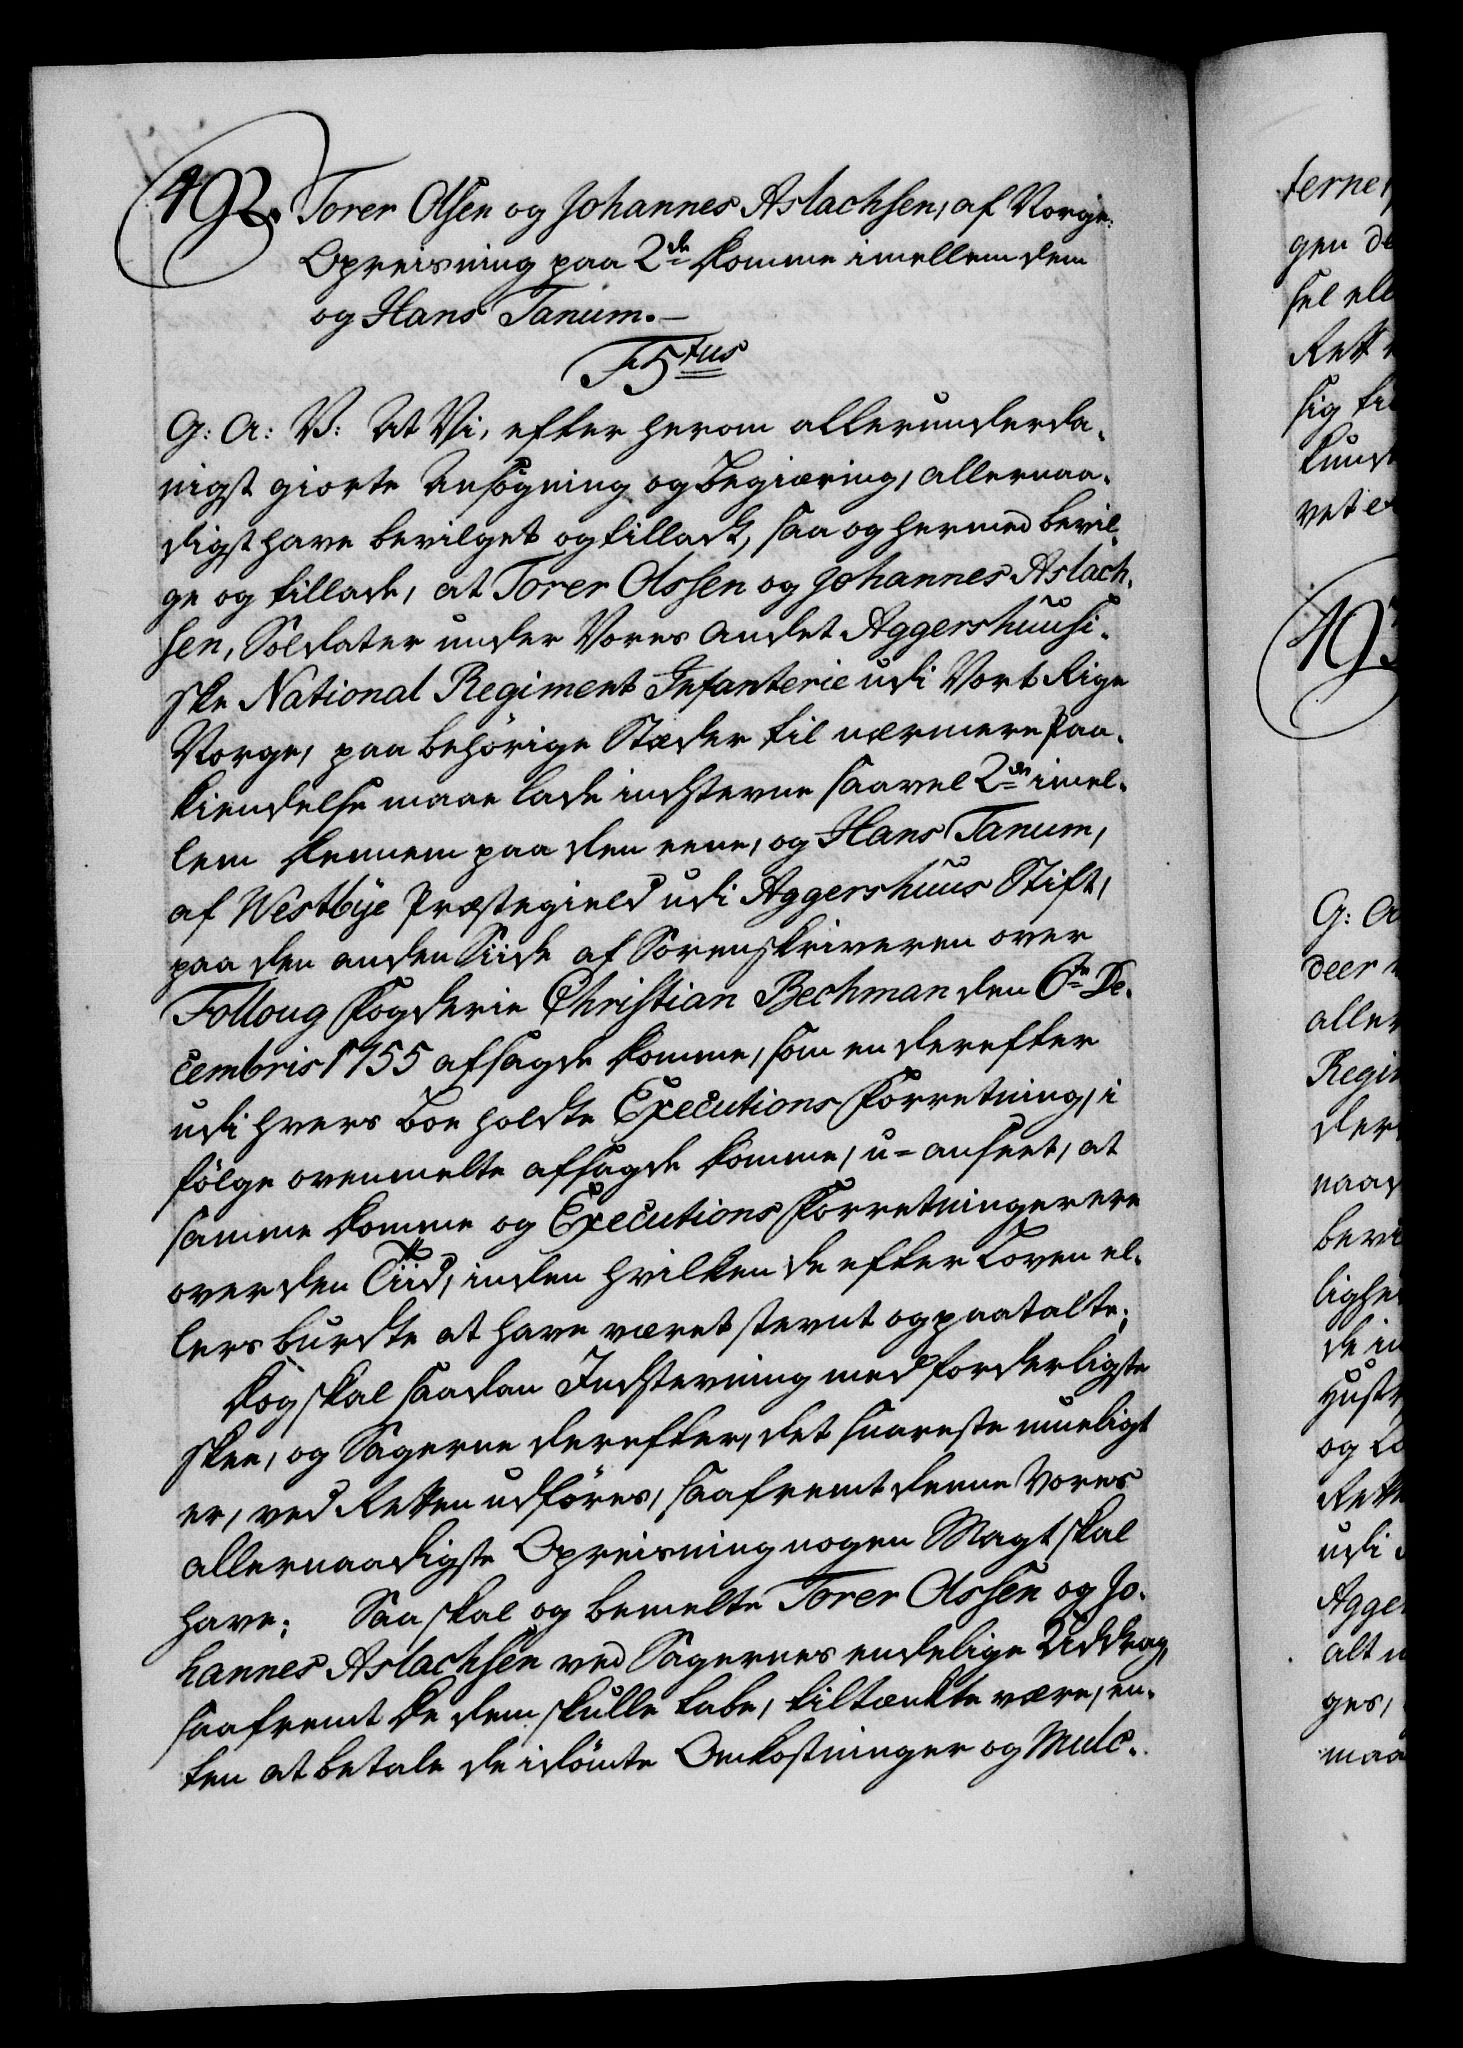 492. Torer Olsen og Johannes Aslachsen, af Norge.
Opreisning paa 2de Domme imellem dem
og Hans Tanum.-
F5tus
G: A: V: At Vi, efter herom allerunderda-
nigst giorte Ansøgning og Begiæring, allernaa-
digst have bevilget og tilladt, saa og hermed bevil-
ge og tillade, at Torer Olssen og Johannes Aslach-
sen, Soldater under Vores andet Aggershuusi-
ske National Regiment Infanterie udi Vort Rige
Norge, paa behörige Stæder til nærmere Paa-
kiendelse maae lade indstevne saavel 2de imel-
lem dennem paa den eene, og Hans Tanum,
af Westbÿe Præstegield udi Aggershuus Stift,
paa den anden Siide af Sorenskriveren over
Folloug Fogderie Christian Bechman den 6te De-
cembris 1755 afsagde Domme, som en derefter
udi hvers Boe holdte Executions Forretning, i
følge ovenmelte afsagde Domme, u-anseet, at
samme Domme og Executions Forretninger ere
over den Tiid, inden hvilken de efter Loven el-
lers burdte at have været stevnt og paatalte;
Dog skal saadan Indstevning med forderligste
skee, og Sagerne derefter, det snareste mueligt
er, ved Retten udføres, saafremt denne Vores
allernaadigste Opreisning nogen Magt skal
have; Saa skal og bemelte Torer Olssen og Jo-
hannes Aslachsen ved Sagernes endelige Uddrag,
saafremt de dem skulle tabe, tiltænkte være, en-
ten at betale de idömte Omkostninger og Mulc-
terne,
gen de
sel ell
Rett
sig ti
kund
vet e
493
G: A
deer
aller
Regi
der
naad
bevi
lighe
de in
Hust
og Lo
Rett
udi
Agge
alt
ges,
maa